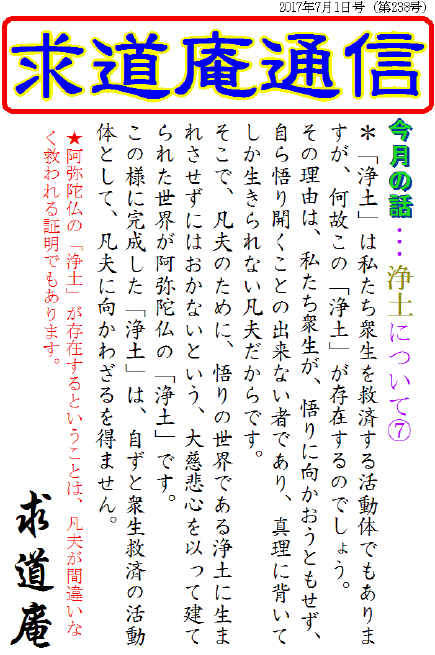 2017年7月1日号（第238号）
求道庵通信
今月の話…浄土について⑦
＊「浄土」は私たち衆生を救済する活動体でもありま
すが、何故この「浄土」が存在するのでしょう。
その理由は、私たち衆生が、悟りに向かおうともせず、
自ら悟り開くことの出来ない者であり、真理に背いて
しか生きられない凡夫だからです。
そこで、凡夫のために、悟りの世界である浄土に生ま
れさせずにはおかないという、大慈悲心を以って建て
られた世界が阿弥陀仏の「浄土」です。
この様に完成した「浄土」は、自ずと衆生救済の活動
体として、凡夫に向かわざるを得ません。
★阿弥陀仏の「浄土」が存在するということは、凡夫が間違いな
く救われる証明でもあります。
求道庵